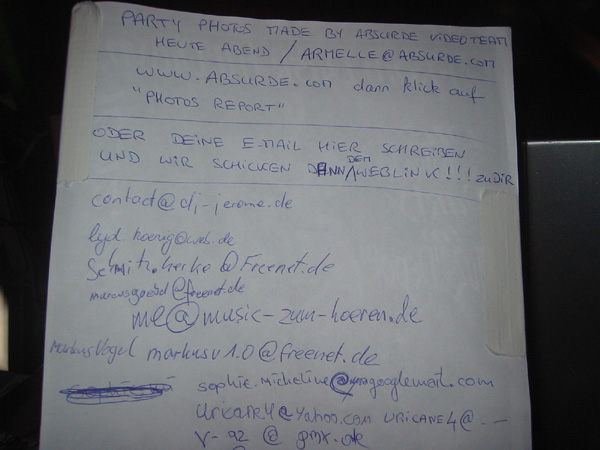 PARTY PHOTOS MADE BY ABSURDE VIDEOTEAM
HEUTE ABEND / ARMELLE@ABSURDE.COM
WWW.ABSURDE.COM dann klick auf
"PHOTOS REPORT"
ODER DEINE E-MAIL HIER SCHREIBEN
UND WIR SCHICKEN DANN DEN WEBLINK!!! zu DIR
contact@dj-jerome.de
lyd koenig@web.de
@Freenet.de
@freenet.de
me@music-zum-hoeren.de
Markus Vogel markusv1.0@freenet.de
sophie.micheline@googlemail.com
Uricane4@Yahoo.com URICANE4@.—
V-92@gmx.de